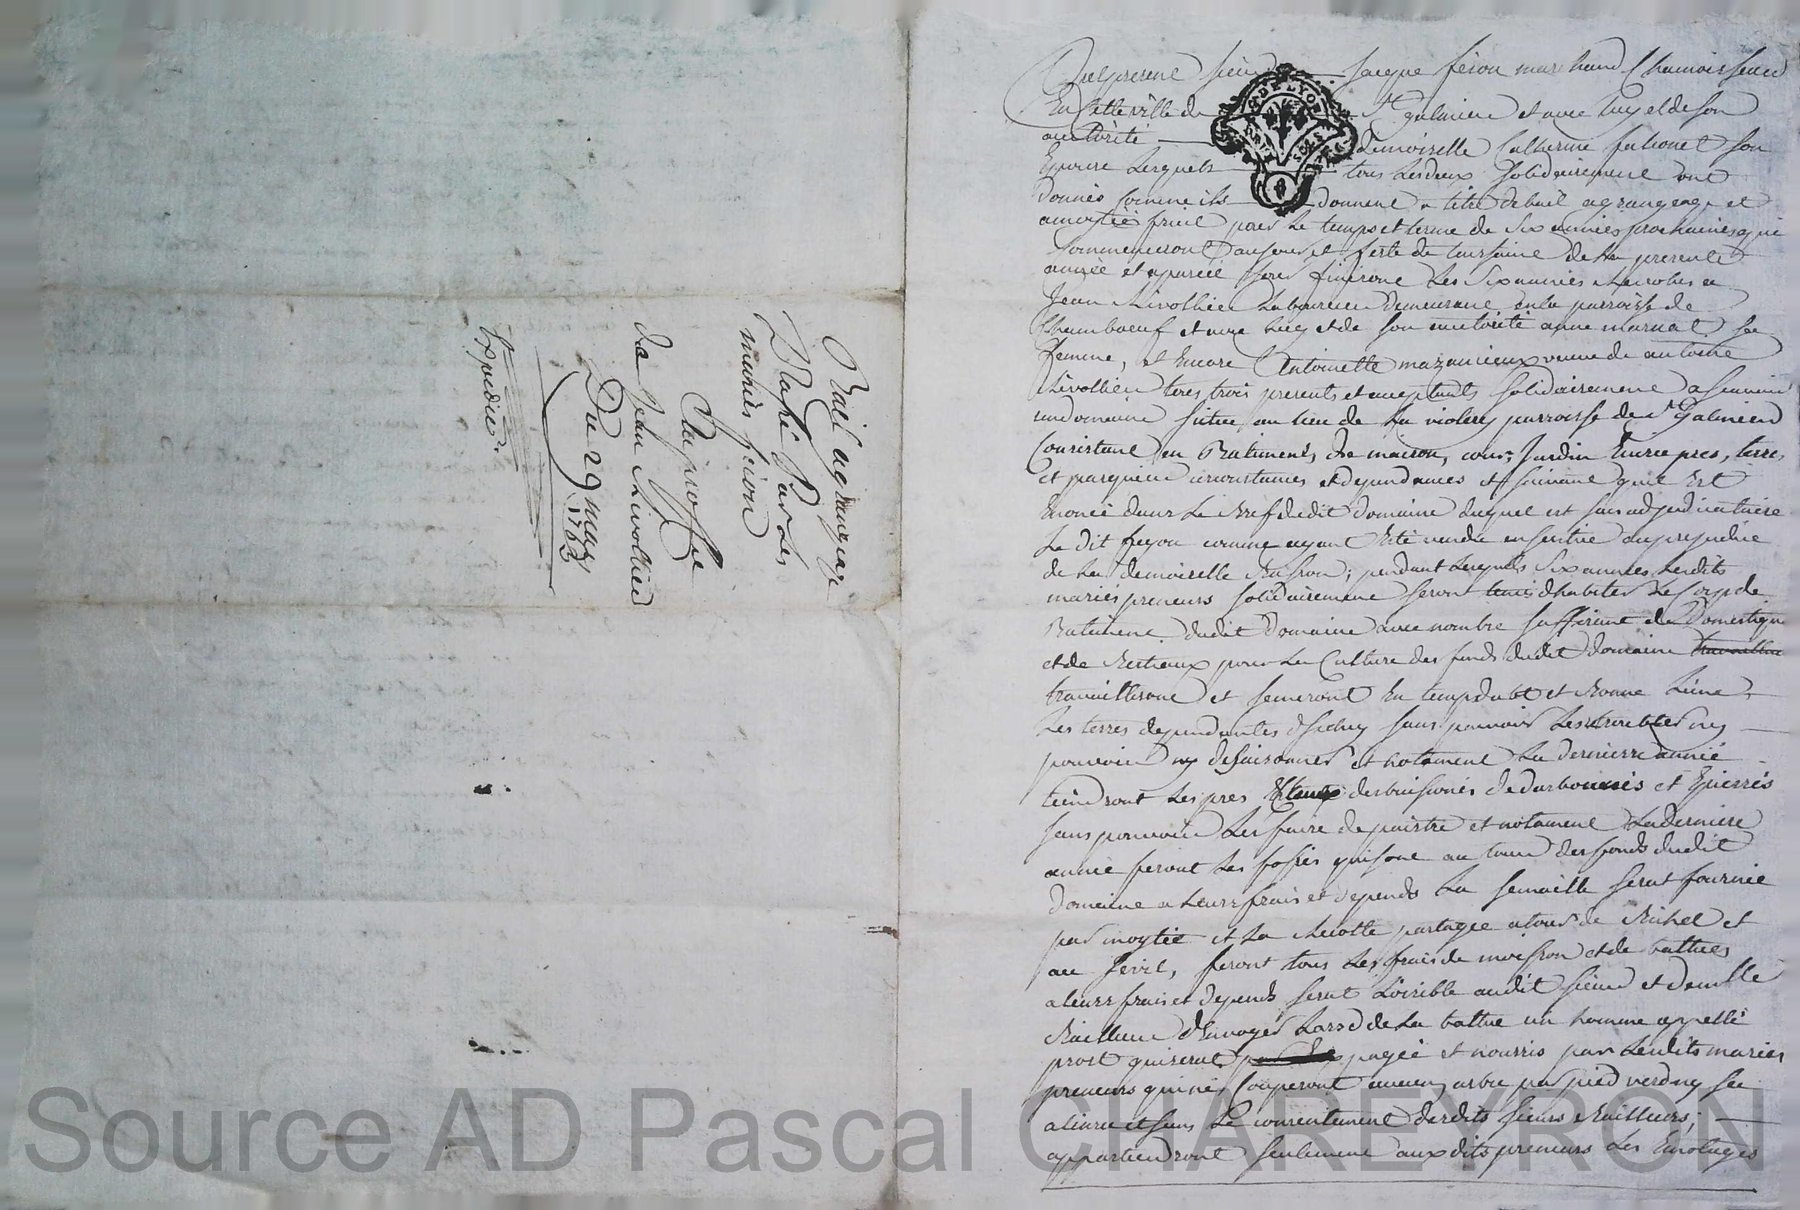 Bail agrangeage
Passé Par Les
mariés feron
Au proffit
da Jean Livollier
Du 29 may
1762
Expedié
fut present sieur Jacque feron marchand Chamoisseur
En Cette ville de St galmier et avec luy et de son
authorité demoiselle Catherine son
Epouse Lesquels tous Les deux Solidairement ont
donnés Comme ils donnent a titre de bail agrangeage et
amoytié fruit pour Le temps et terme de Six années prochaines qui
Commenceront au jour et feste de toussaint de La presente
année et a pareil jour finiront Les Six années revolues a
Jean Livollier Laboureur demeurant en la parroisse de
Chambœuf et avec luy et de son autorité anne sa
femme, et Encore Antoinette mazancieux veuve de antoine
Livollier tous trois presents et acceptants solidairement
un domaine situé au lieu de La violey parroisse de St Galmier
Consistant en Batiments, de maison, cour, Jardin pres, terres
et circonstances et dependances et suivant qu'il Est
Enoncé dans Le Bref dudit domaine duquel est adjudicataire
Le dit feron comme ayant Esté vendu au prejudice
de La demoiselle ; pendant Lesquels Six années Lesdits
mariés preneurs solidairement seront tenus d'habiter Le Corp de
Batiment dudit Domaine avec nombre suffisant de Domestique
et de Bestiaux pour La Culture des fonds dudit domaine
travailleront et semeront En temp dubt et Bonne Lune
Les terres dependantes d'Icelluy sans pouvoir Les ny
pouvoir ny desaisonner et notament La derniere année
tiendront Les pres et Epierrés
sans pouvoir Les faire depaistre et notament La derniere
année feront Les fossés qui sont au tour des fonds dudit
Domaine a Leurs frais et depends La semaille serat fournie
par moytié et La recolte partagée a tour de Bichet et
au feront tous Les frais de moisson et de battues
a leurs frais et depends serat Loisible audit sieur et demlle
Bailleurs d'Envoyer Lors de La battue un homme appellé
prost qui serat payé et nourris par Lesdits mariés
preneurs qui ne Couperont aucun arbre par pied verd ny sec
a leurs et sans Le consentement desdits sieurs Bailleurs;
appartiendront seulement auxdits preneurs Les Emolages
Source AD Pascal CHAREYRON